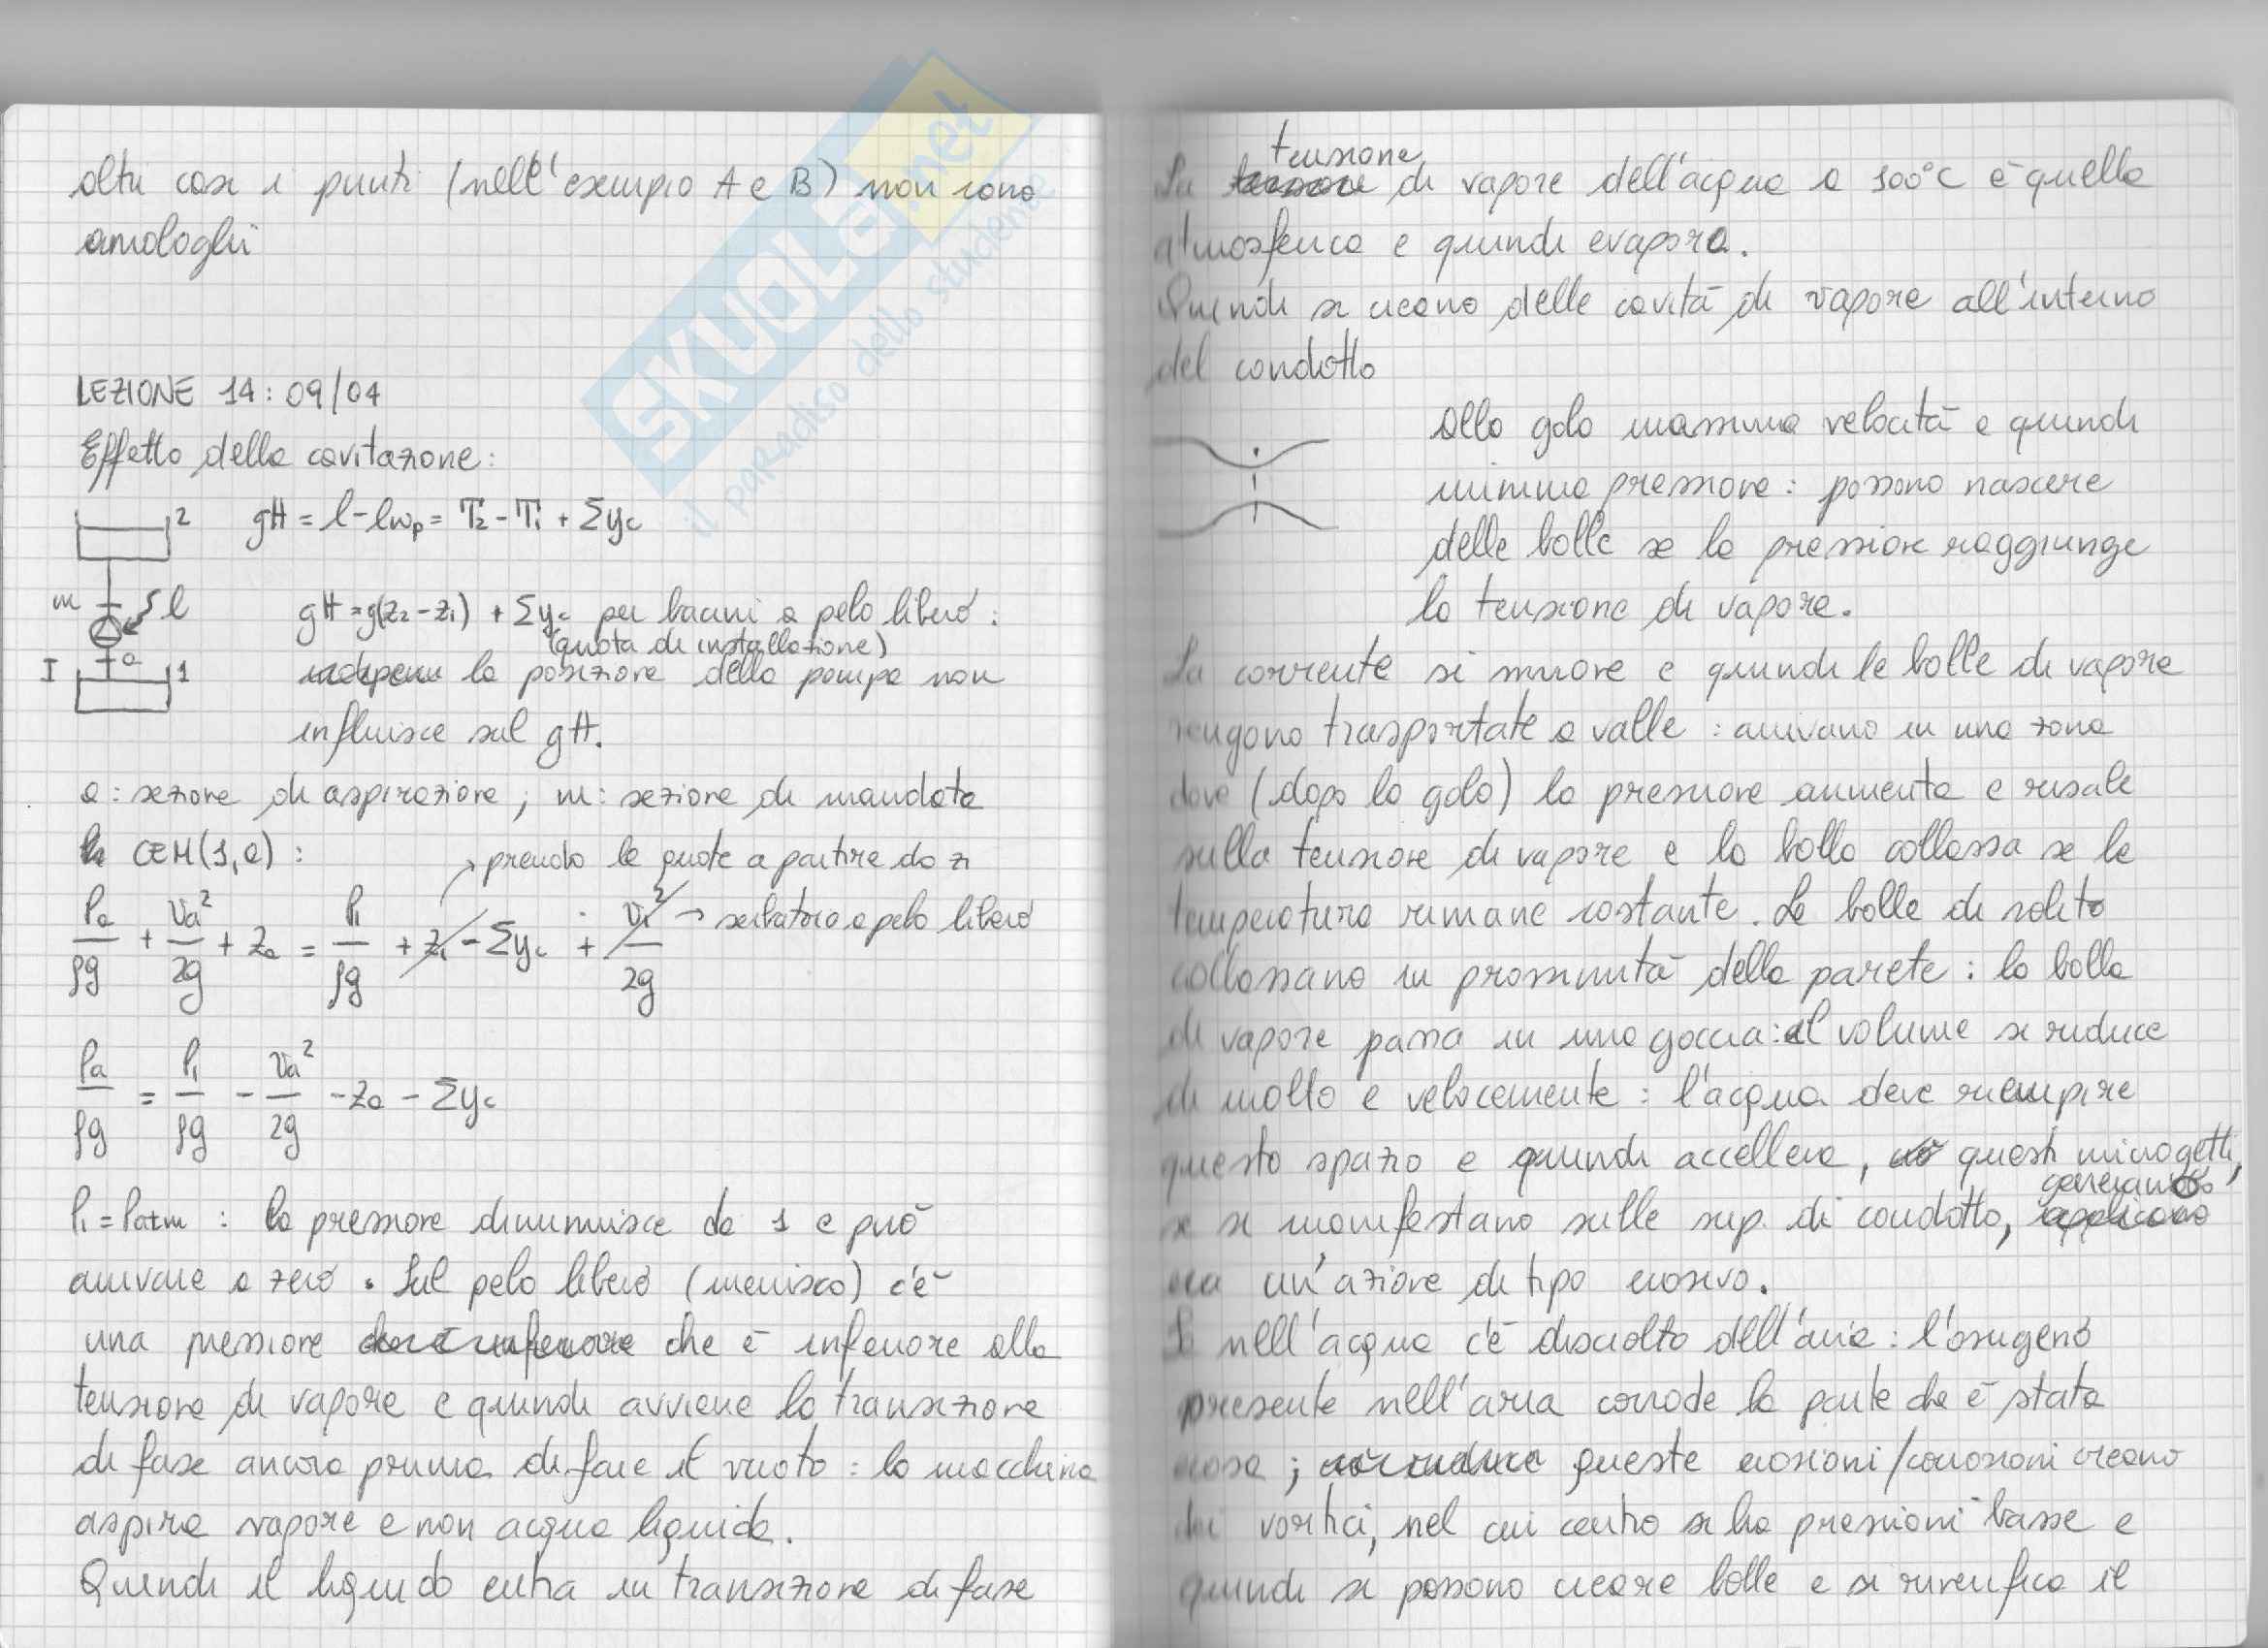 altri casi i punti (nell'esempio A e B) non sono
omologhi
LEZIONE 14: 09/04
Effetto della cavitazione:
2
gH = l - lwp = T2 - T1 + Σyc
m
l
gH = g(z2 - z1) + Σyc per bacini a pelo libero:
(quota di installazione)
a
I
1
la posizione della pompa non
influisce sul gH.
a: sezione di aspirazione; m: sezione di mandata
CEM(1,a):
→ prendo le quote a partire da z1
Pa/ρg + va²/2g + za = P1/ρg + z1 - Σyc + v1²/2g → serbatoio a pelo libero
Pa/ρg = P1/ρg - va²/2g - za - Σyc
P1 = Patm : la pressione diminuisce da 1 e può
arrivare a zero. Sul pelo libero (menisco) c'è
una pressione che è inferiore alla
tensione di vapore e quindi avviene la transizione
di fase ancora prima di fare il vuoto: la macchina
aspira vapore e non acqua liquida.
Quindi il liquido entra in transizione di fase
tensione
La di vapore dell'acqua a 100°C è quella
atmosferica e quindi evapora.
Quindi si creano delle cavità di vapore all'interno
del condotto
Alla gola massima velocità e quindi
minima pressione: possono nascere
delle bolle se la pressione raggiunge
la tensione di vapore.
La corrente si muove e quindi le bolle di vapore
vengono trasportate a valle: arrivano in una zona
dove (dopo la gola) la pressione aumenta e risale
sulla tensione di vapore e la bolla collassa se la
temperatura rimane costante. Le bolle di solito
collassano in prossimità della parete: la bolla
di vapore passa in una goccia: il volume si riduce
di molto e velocemente: l'acqua deve riempire
questo spazio e quindi accellera, questi microgetti,
generano
se si manifestano sulle sup. di condotto,
un'azione di tipo erosivo.
nell'acqua c'è disciolto dell'aria: l'ossigeno
presente nell'aria corrode la parte che è stata
erosa; queste erosioni/corrosioni creano
dei vortici, nel cui centro si ha pressioni basse e
quindi si possono creare bolle e si riverifica il
SKUOLA.net
il paradiso dello studente